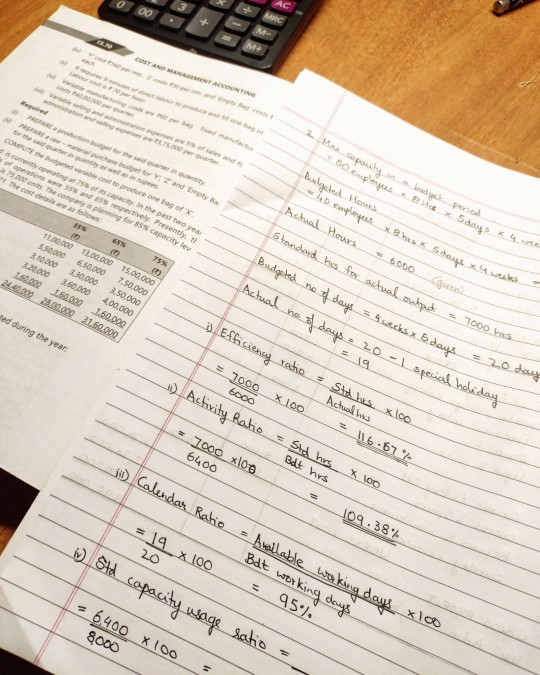 AC
MRC
M-
M+
0
00
3
+
15.70
COST AND MANAGEMENT ACCOUNTING
each.
(v)
It requires 9 minutes of direct labour to produce and fill one bag of
Labour cost is ₹ 70 per hour.
(vi) Variable manufacturing costs are ₹60 per bag. Fixed
costs ₹40,00,000 per quarter.
(vii) Variable selling and administration expenses are 5% of sales and
administration and selling expenses are ₹3,75,000 per quarter.
Required
(i) PREPARE a production budget for the said quarter in quantity.
(ii) PREPARE a raw-material purchase budget for 'Y', 'Z' and 'Empty
for the said quarter in quantity as well as in rupees.
COMPUTE the budgeted variable cost to produce one bag of 'X'.
is currently operating at 75% of its capacity. In the past two
of operations were 55% and 65% respectively. Presently,
is 75,000 units. The company is planning for 85% capacity
The cost details are as follows:
55% 65% 75%
(₹) (₹) (₹)
11,00,000 13,00,000 15,00,000
5,50,000 6,50,000 7,50,000
3,10,000 3,30,000 3,50,000
3,20,000 3,60,000 4,00,000
1,60,000 1,60,000 1,60,000
24,40,000 28,00,000 31,60,000
ted during the year:
2. Max capacity in a budget period
= 50 employees × 8 hrs × 5 days × 4
Budgeted Hours
= 40 employees × 8 hrs × 5 days × 4 weeks =
Actual Hours = 6000 (given)
Standard hrs for actual output = 7000 hrs
Budgeted no. of days = 4 weeks × 5 days = 20 days
Actual no. of days = 20 - 1 special holiday
= 19
i) Efficiency ratio = Std hrs × 100
Actual hrs
= 7000 × 100 = 116.67%
6000
ii) Activity Ratio = Std hrs × 100
Bdt hrs
= 7000 × 100 = 109.38%
6400
iii) Calendar Ratio = Available working days × 100
Bdt working days
= 19 × 100 = 95%
20
iv) Std capacity usage ratio =
= 6400 × 100 =
8000